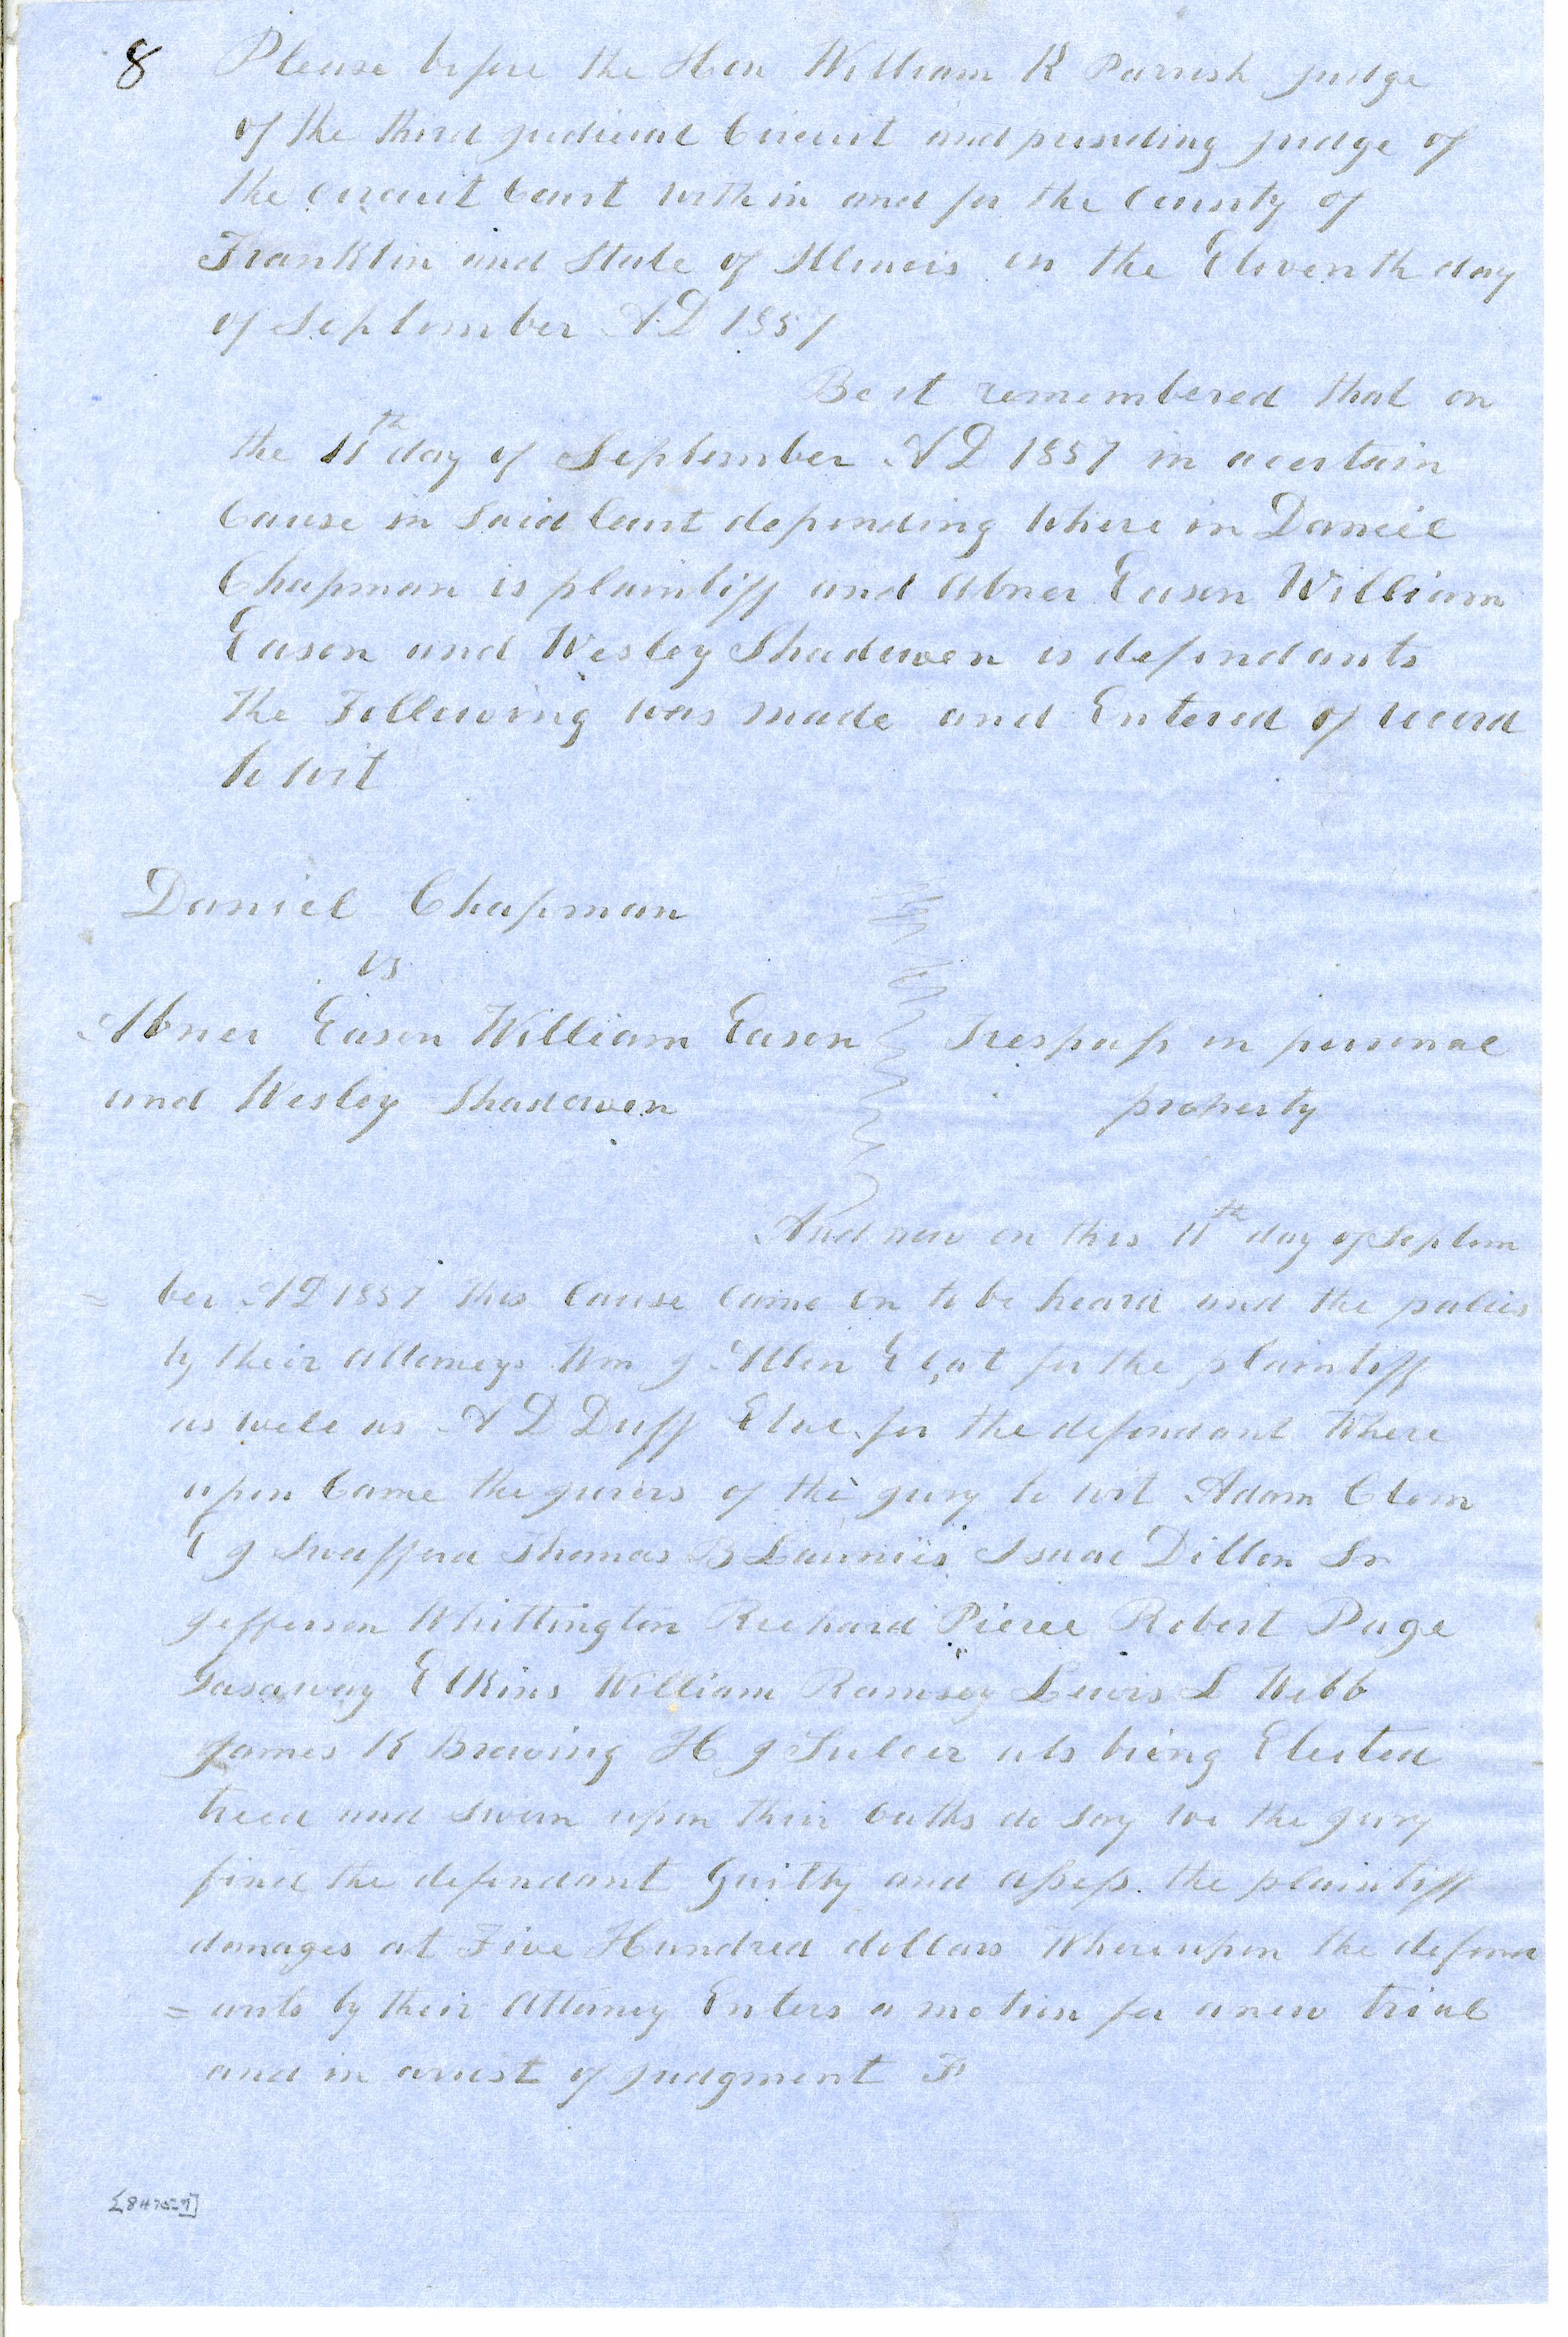 8 Please before the Hon William K Parrish judge
of the third judicial Circuit and presiding judge of
the circuit Court within and for the County of
Franklin and State of Illinois on the Eleventh day
of September AD 1857
Be it remembered that on
the 11th day of September AD 1857 in a certain
Cause in said Court depending where in Daniel
Chapman is plaintiff and Abner Eason William
Eason and Wesley Shadowen is defendants
the Following was made and Entered of record
to wit
Daniel Chapman
vs
Abner Eason William Eason Trespass on personal
and Wesley Shadowen property
And now on this 11th day of Septem
= ber AD 1857 this Cause came on to be heard and the parties
by their attorneys Wm J Allen for the plaintiff
as well as A D Duff for the defendant Where
upon Came the jurors of the jury to wit Adam Clem
J Swafford Thomas B Isaac Dillon Sr
Jefferson Whittington Richard Pierce Robert Page
Gasaway Elkins William Ramsey Lewis L Webb
James K Browing H J being Elected
tried and sworn upon their oaths do say we the jury
find the defendant Guilty and assess the plaintiff
damages at Five Hundred dollars Whereupon the defend
= ants by their attorney Enters a motion for a new trial
and in arrest of judgment